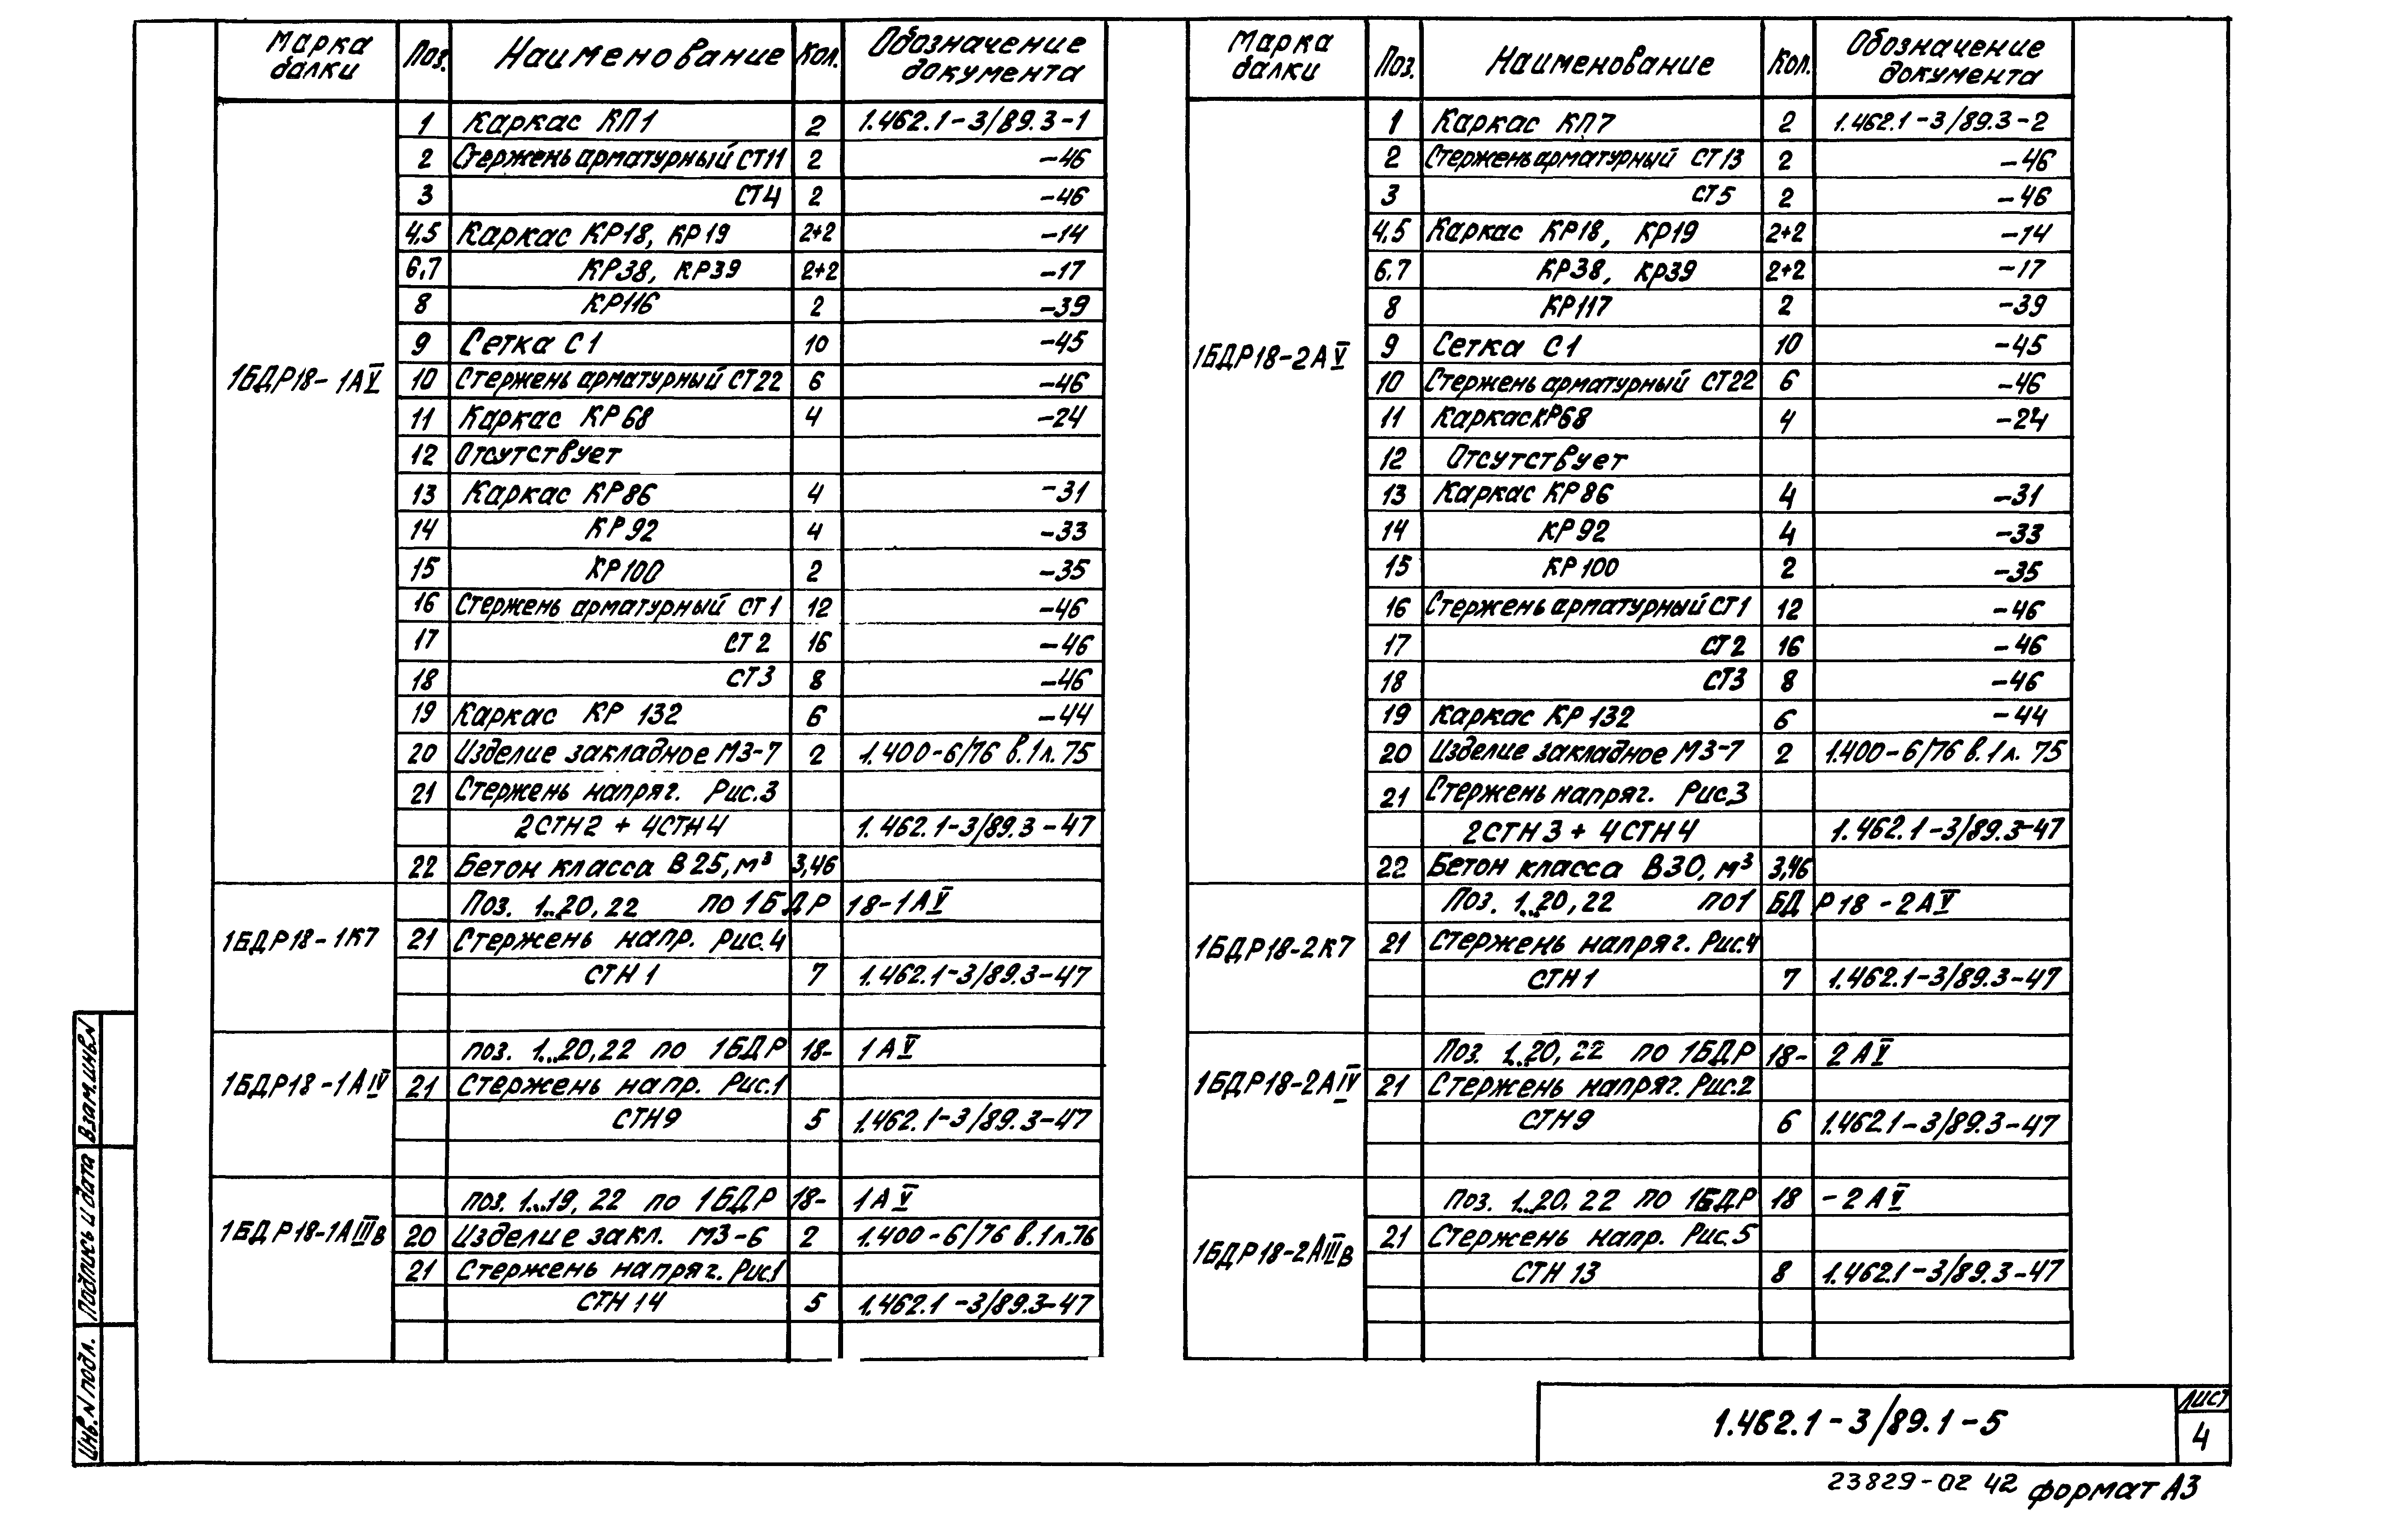 Марка балки Поз. Наименование Кол. Обозначение документа
1БДР18-1АV
1 Каркас КП1 2 1.462.1-3/89.3-1
2 Стержень арматурный СТ11 2 -46
3 СТ4 2 -46
4,5 Каркас КР18, КР19 2+2 -14
6,7 КР38, КР39 2+2 -17
8 КР116 2 -39
9 Сетка С1 10 -45
10 Стержень арматурный СТ22 6 -46
11 Каркас КР68 4 -24
12 Отсутствует
13 Каркас КР86 4 -31
14 КР92 4 -33
15 КР100 2 -35
16 Стержень арматурный СТ1 12 -46
17 СТ2 16 -46
18 СТ3 8 -46
19 Каркас КР 132 6 -44
20 Изделие закладное МЗ-7 2 1.400-6/76 в.1 л.75
21 Стержень напряг. Рис.3
2СТН2 + 4СТН4 1.462.1-3/89.3-47
22 Бетон класса В25, м³ 3,46
1БДР18-1К7
Поз. 1...20,22 по 1БДР 18-1АV
21 Стержень напр. Рис.4
СТН1 7 1.462.1-3/89.3-47
1БДР18-1АIV
поз. 1...20,22 по 1БДР 18-1АV
21 Стержень напр. Рис.1
СТН9 5 1.462.1-3/89.3-47
1БДР18-1АIIIв
поз. 1...19, 22 по 1БДР 18-1АV
20 Изделие закл. МЗ-6 2 1.400-6/76 в.1 л.76
21 Стержень напряг. Рис.1
СТН14 5 1.462.1-3/89.3-47
Марка балки Поз. Наименование Кол. Обозначение документа
1БДР18-2АV
1 Каркас КП7 2 1.462.1-3/89.3-2
2 Стержень арматурный СТ13 2 -46
3 СТ5 2 -46
4,5 Каркас КР18, КР19 2+2 -14
6,7 КР38, КР39 2+2 -17
8 КР117 2 -39
9 Сетка С1 10 -45
10 Стержень арматурный СТ22 6 -46
11 Каркас КР68 4 -24
12 Отсутствует
13 Каркас КР86 4 -31
14 КР92 4 -33
15 КР100 2 -35
16 Стержень арматурный СТ1 12 -46
17 СТ2 16 -46
18 СТ3 8 -46
19 Каркас КР132 6 -44
20 Изделие закладное МЗ-7 2 1.400-6/76 в.1 л. 75
21 Стержень напряг. Рис.3
2СТН3 + 4СТН4 1.462.1-3/89.3-47
22 Бетон класса В30, м³ 3,46
1БДР18-2К7
Поз. 1...20,22 по 1БДР18-2АV
21 Стержень напряг. Рис.4
СТН1 7 1.462.1-3/89.3-47
1БДР18-2АIV
Поз. 1...20, 22 по 1БДР 18-2АV
21 Стержень напряг. Рис.2
СТН9 6 1.462.1-3/89.3-47
1БДР18-2АIIIв
Поз. 1...20, 22 по 1БДР 18-2АV
21 Стержень напр. Рис.5
СТН13 8 1.462.1-3/89.3-47
Взам.инв.N
Подпись и дата
Инв.N подл.
1.462.1-3/89.1-5
Лист
4
23829-02 42 формат А3